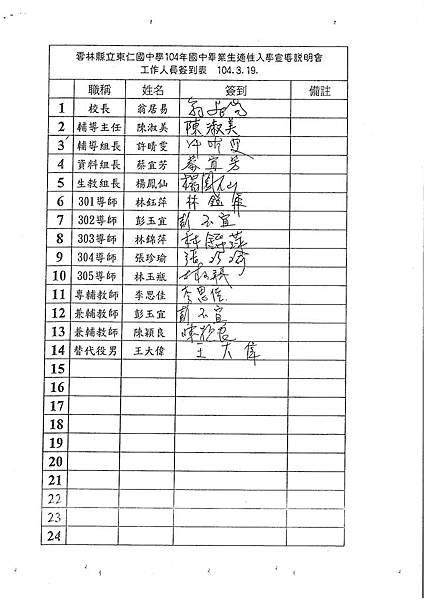 雲林縣立東仁國中學104年國中畢業生適性入學宣導說明會
工作人員簽到表 104.3.19.
職稱 姓名 簽到 備註
1 校長 翁居易 翁居易
2 輔導主任 陳淑美 陳淑美
3 輔導組長 許晴雯 許晴雯
4 資料組長 蔡宜芳 蔡宜芳
5 生教組長 楊鳳仙 楊鳳仙
6 301導師 林鈺萍 林鈺萍
7 302導師 彭玉宜 彭玉宜
8 303導師 林錦萍 林錦萍
9 304導師 張珍瑜 張珍瑜
10 305導師 林玉瓶
11 專輔教師 李思佳 李思佳
12 兼輔教師 彭玉宜 彭玉宜
13 兼輔教師 陳穎良 陳穎良
14 替代役男 王大偉 王大偉
15
16
17
18
19
20
21
22
23
24